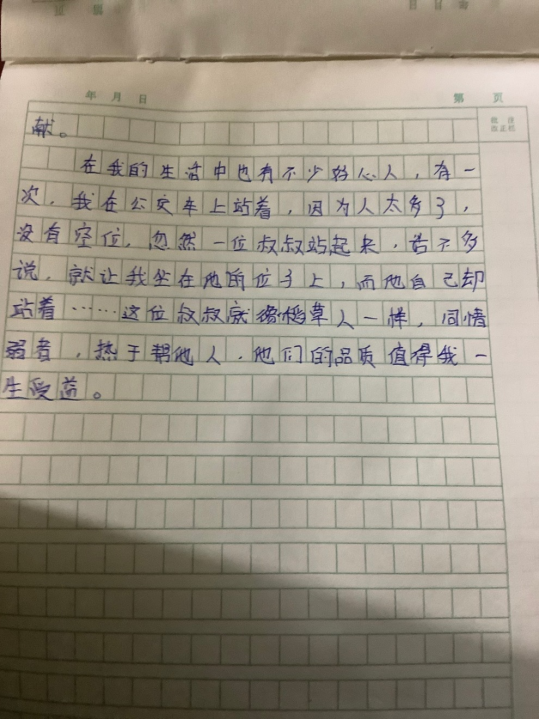 年 月 日 第 页
献。
在我的生活中也有不少热心人，有一
次，我在公交车上站着，因为人太多了，
没有空位，忽然一位叔叔站起来，话不多
说，就让我坐在他的位子上，而他自己却
站着……这位叔叔就像稻草人一样，同情
弱者，热于帮他人，他们的品质值得我一
生受益。